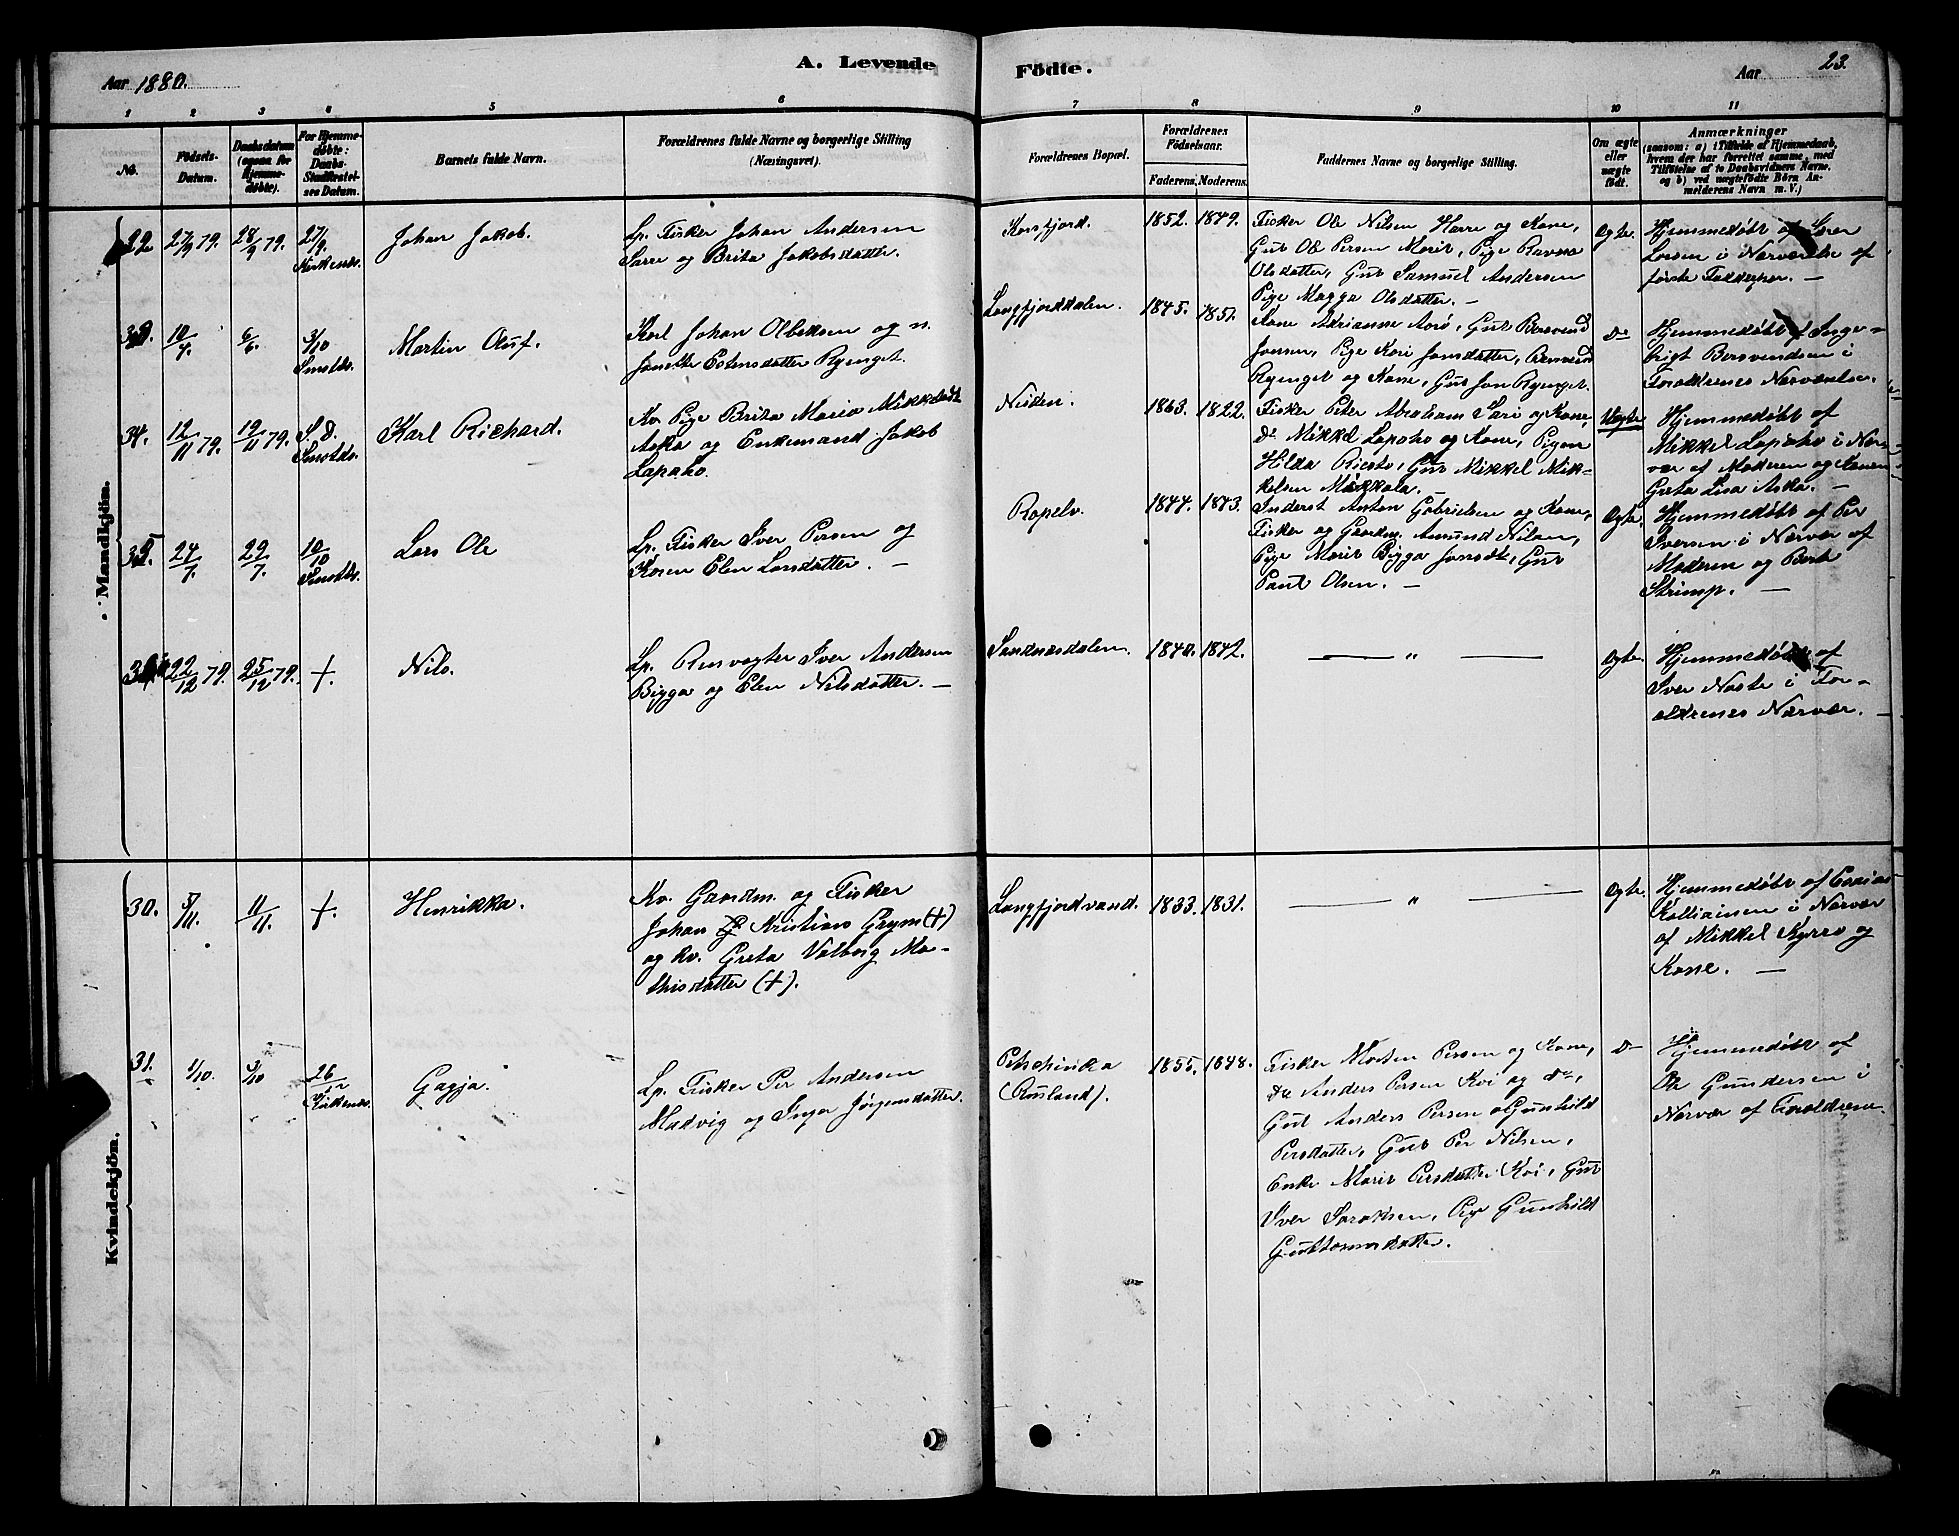 Aar 1880.
A. Levende
Födte.
Aar
23.
1 2 3 4 5 6 7 8 9 10 11
No.
Födsels-
Datum.
Daabsdatum
(ogsaa for
Hjemme-
döbte).
For Hjemme-
döbte:
Daabs-
Stadfæstel-
ses Datum.
Barnets fulde Navn.
Forældrenes fulde Navne og borgerlige Stilling
(Næringsvei).
Forældrenes Bopæl.
Forældrenes
Födselsaar.
Faderens. Moderens.
Faddernes Navne og borgerlige Stilling.
Om ægte
eller
uægte
født.
Anmærkninger
(saasom: a) i Tilfælde af Hjemmedaab,
hvem der har forrettet samme, med
Tilföielse af to Daabsvidners Navne,
og b) ved uægtefödte Börn An-
melderens Navn m. V.)
Mandkjön.
27/9 79.
28/9 79.
27/9.
Kirkenæs.
Johan Jakob.
Lp. Fisker Johan Andersen
Sarre og Brita Jakobsdatter.
Korsfjord.
1852. 1849.
Fisker Ole Nilsen Harre og Kone,
Gut Ole Persen Marit, Pige Ravna
Olsdatter, Gut Samuel Andersen
Pige Magga Olsdatter. —
Ægte.
Hjemmedøbt af Lærer
Larsen i Nærværelse af
første Faddere. —
10/4.
6/6.
3/10
Smstds.
Martin Oluf.
Karl Johan Olbeksen og n.
Janette Estensdatter Rynget.
Langfjorddalen.
1845. 1851.
Kone Adrianne Aarø, Gut Bersvend
Joersen, Pige Kari Jonsdatter, Bersvend
Rynget og Kone, Gut Jon Rynget.
do
Hjemmedøbt af Inge-
brigt Bersvendsen i
Forældrenes Nærværelse.
34.
12/11 79.
19/11 79.
S. D.
Smstds.
Karl Richard.
Kv. Pige Brita Maria Mikkelsdt
Aska og Enkemand Jakob
Lapaho.
Neiden.
1863. 1822.
Fisker Peter Abraham Sari og Kone,
do Mikkel Lapaho og Kone, Pigen
Hilda Riesto, Gut Mikkel Mik-
kelsen Mikkola. —
Uægte
Hjemmedøbt af
Mikkel Lapaho i Nær-
vær af Moderen og Konen
Greta Lisa Aska. —
35
24/7.
29/7.
10/10
Smstds.
Lars Ole
Lp. Fisker Iver Persen og
Karen Elen Larsdatter. —
Ropelv.
1844. 1843.
Inderst Anton Gabrielsen og Kone,
Fisker og Gaardm. Amund Nilsen,
Pige Marit Bigga Jonsdt, Gut
Paul Olsen. —
Ægte.
Hjemmedøbt af Per
Iversen i Nærvær af
Moderen og Berit
Strimp. —
22/12 79.
25/12 79.
+.
Nils.
Lp. Rensvogter Iver Andersen
Bigga og Elen Nilsdatter. —
Sandnesdalen.
1840. 1842.
— " —
Ægte.
Hjemmedøbt af
Iver Naste i For-
ældrenes Nærvær. —
Kvindekjön.
30.
5/11.
11/11.
+.
Henrikka.
Kv. Gaardm. og Fisker
Johan Kristian Grym (+)
og kv. Greta Valborg Ma-
thisdatter (+).
Langfjordvand.
1833. 1831.
— " —
Ægte.
Hjemmedøbt af Esaias
Kalliainen i Nærvær
af Mikkel Kyrro og
Kone. —
31.
1/10.
3/10
26/12
Kirkenæs.
Gagja.
Lp. Fisker Per Andersen
Madvig og Inga Jørgensdatter.
Petschinka
(Rusland).
1855. 1848.
Fisker Morten Persen og Kone,
do Anders Persen Koi og do,
Gut Anders Persen Gunhild
Persdatter, Gut Per Nilsen,
Enke Marit Persdatter Koi, Gut
Iver Saraksen, Pige Gunhild
Guttormsdatter.
do
Hjemmedøbt af
Ole Gundersen i
Nærvær af Forældrene.